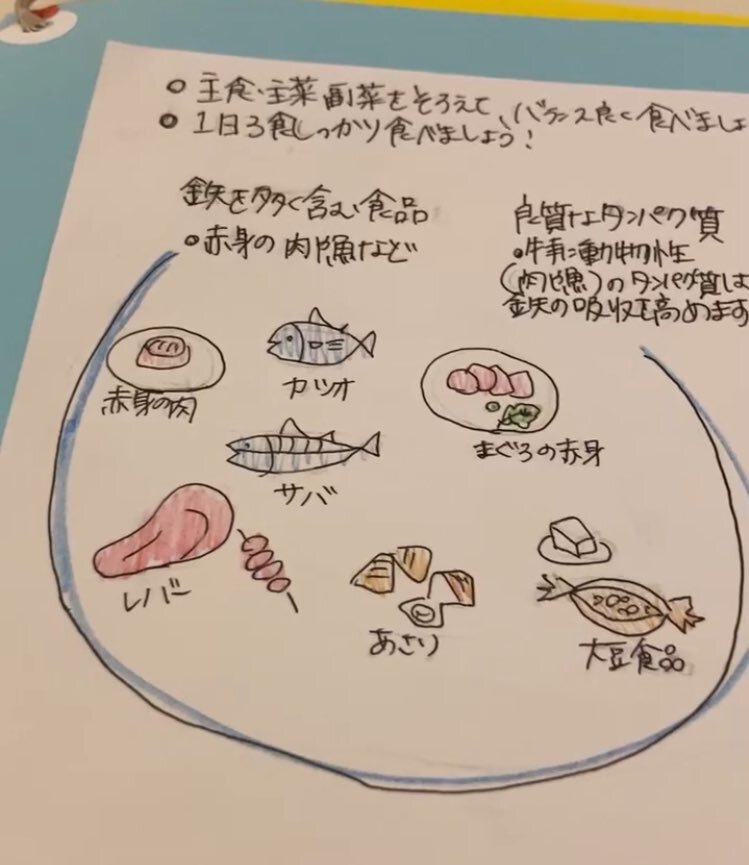 ○ 主食・主菜 副菜をそろえて、バランス良く食べましょ
○ 1日3食しっかり食べましょう!
鉄を多く含む食品
○赤身の肉や魚など
良質なタンパク質
・特に動物性
(肉や魚)のタンパク質は
鉄の吸収を高めます
赤身の肉
カツオ
まぐろの赤身
サバ
レバー
あさり
大豆食品